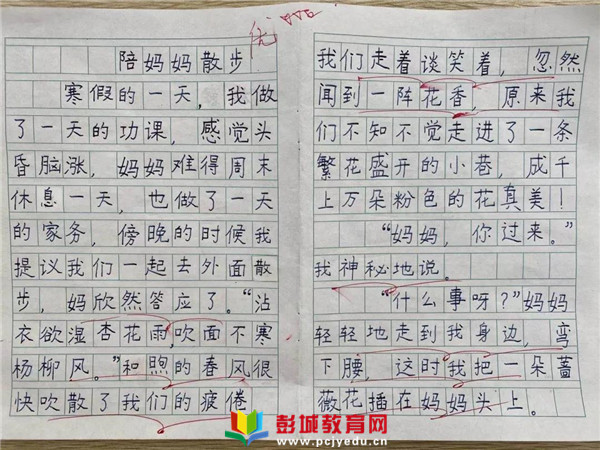 优
陪妈妈散步
寒假的一天，我做
了一天的功课，感觉头
昏脑涨，妈妈难得周末
休息一天，也做了一天
的家务，傍晚的时候我
提议我们一起去外面散
步，妈欣然答应了。“沾
衣欲湿杏花雨，吹面不寒
杨柳风。”和煦的春风很
快吹散了我们的疲倦
我们走着谈笑着，忽然
闻到一阵花香，原来我
们不知不觉走进了一条
繁花盛开的小巷，成千
上万朵粉色的花真美！
“妈妈，你过来。”
我神秘地说。
“什么事呀？”妈妈
轻轻地走到我身边，弯
下腰，这时我把一朵蔷
薇花插在妈妈头上。
彭城教育网
www.pcjyedu.cn